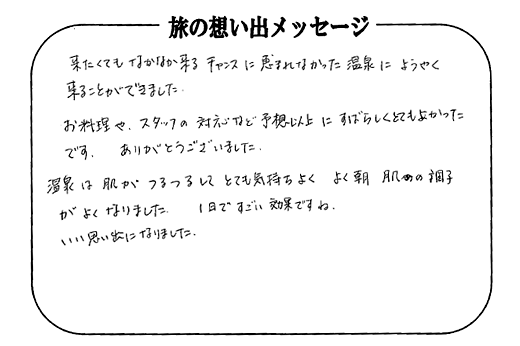 旅の想い出メッセージ
来たくても なかなか来る チャンスに恵まれなかった 温泉に ようやく
来ることができました.
お料理や、スタッフの 対応など 予想以上に すばらしくとてもよかった
です. ありがとうございました.
温泉は 肌が つるつるして とても気持ちよく よく朝 肌の調子
がよくなりました. 1日ですごい 効果ですね.
いい思い出になりました.